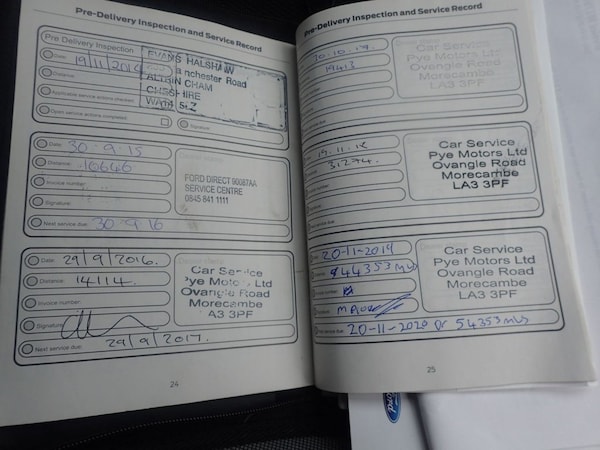 Pre-Delivery Inspection and Service Record
Pre Delivery Inspection
Date: 19/11/2014
Distance:
EVANS HALSHAW
anchester Road
ALTRIN CHAM
CHESHIRE
Open service actions completed
Signature:
Date: 30-9-15
Distance:
Invoice number:
Signature:
Next service due: 30-9-16
FORD DIRECT 90087AA
SERVICE CENTRE
0845 841 1111
Date: 29/9/2016.
Distance: 14114.
Invoice number:
Signature:
Next service due: 29/9/2017.
Car Service
Pye Motors Ltd
Ovangle Road
Morecambe
A3 3PF
24
Pre-Delivery Inspection and Service Record
Car Service
Pye Motors Ltd
Ovangle Road
Morecambe
LA3 3PF
31274.
Car Service
Pye Motors Ltd
Ovangle Road
Morecambe
LA3 3PF
20-11-2019
44353 mls
Car Service
Pye Motors Ltd
Ovangle Road
Morecambe
LA3 3PF
20-11-2020 or 54353 mls
25